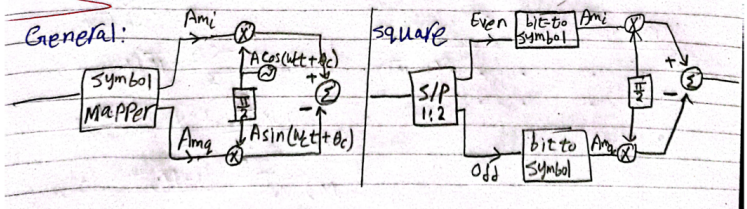 General:
Ami
Symbol
MAPPER
X
Acos(wct+θc)
π/2
+
-
Σ
Amq
X
Asin(wct+θc)
square
S/P
1:2
Even
bit-to
symbol
Ami
X
π/2
+
-
Σ
Odd
bit to
symbol
Amq
X